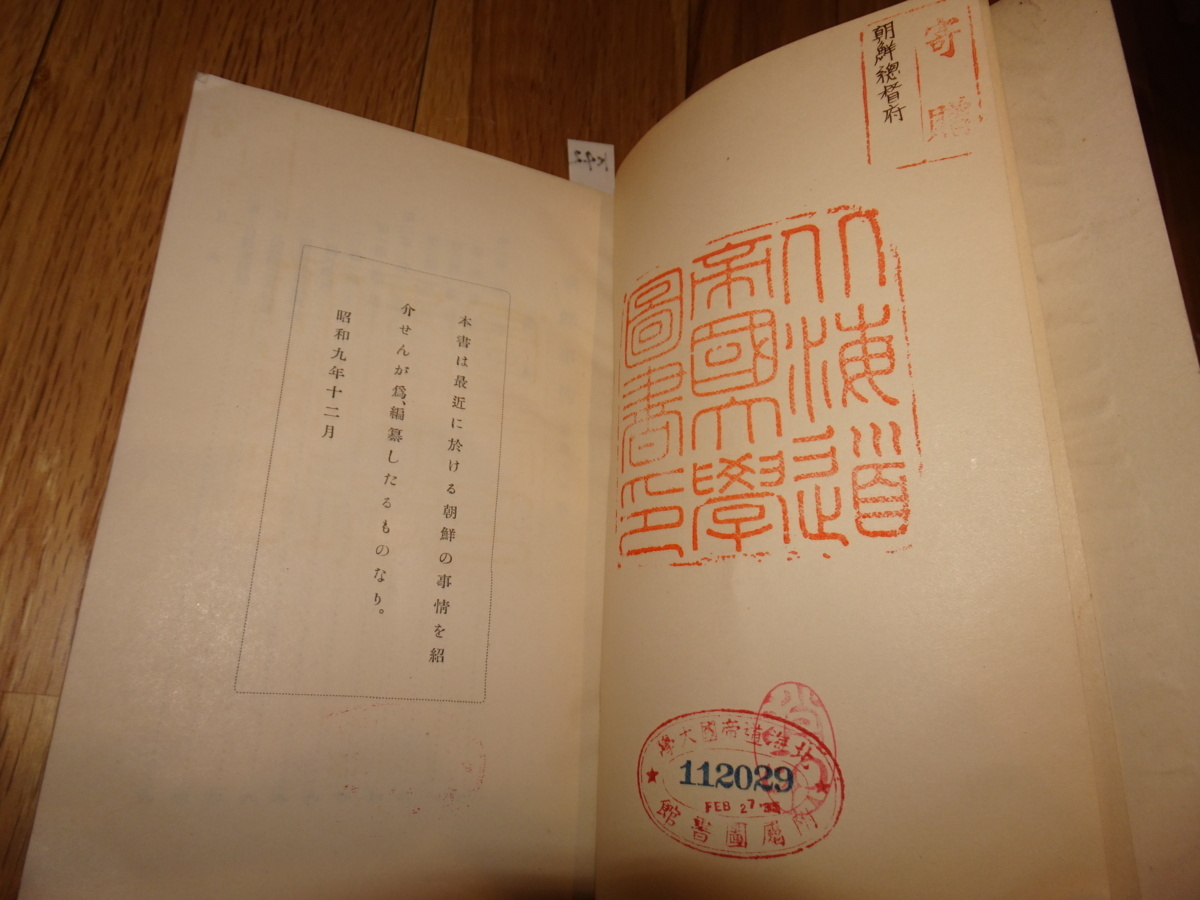 寄贈
朝鮮總督府
北海道
帝國大學
圖書印
本書は最近に於ける朝鮮の事情を紹
介せんが爲、編纂したるものなり。
昭和九年十二月
北海道帝國大學
112029
FEB 27.35
附屬圖書館